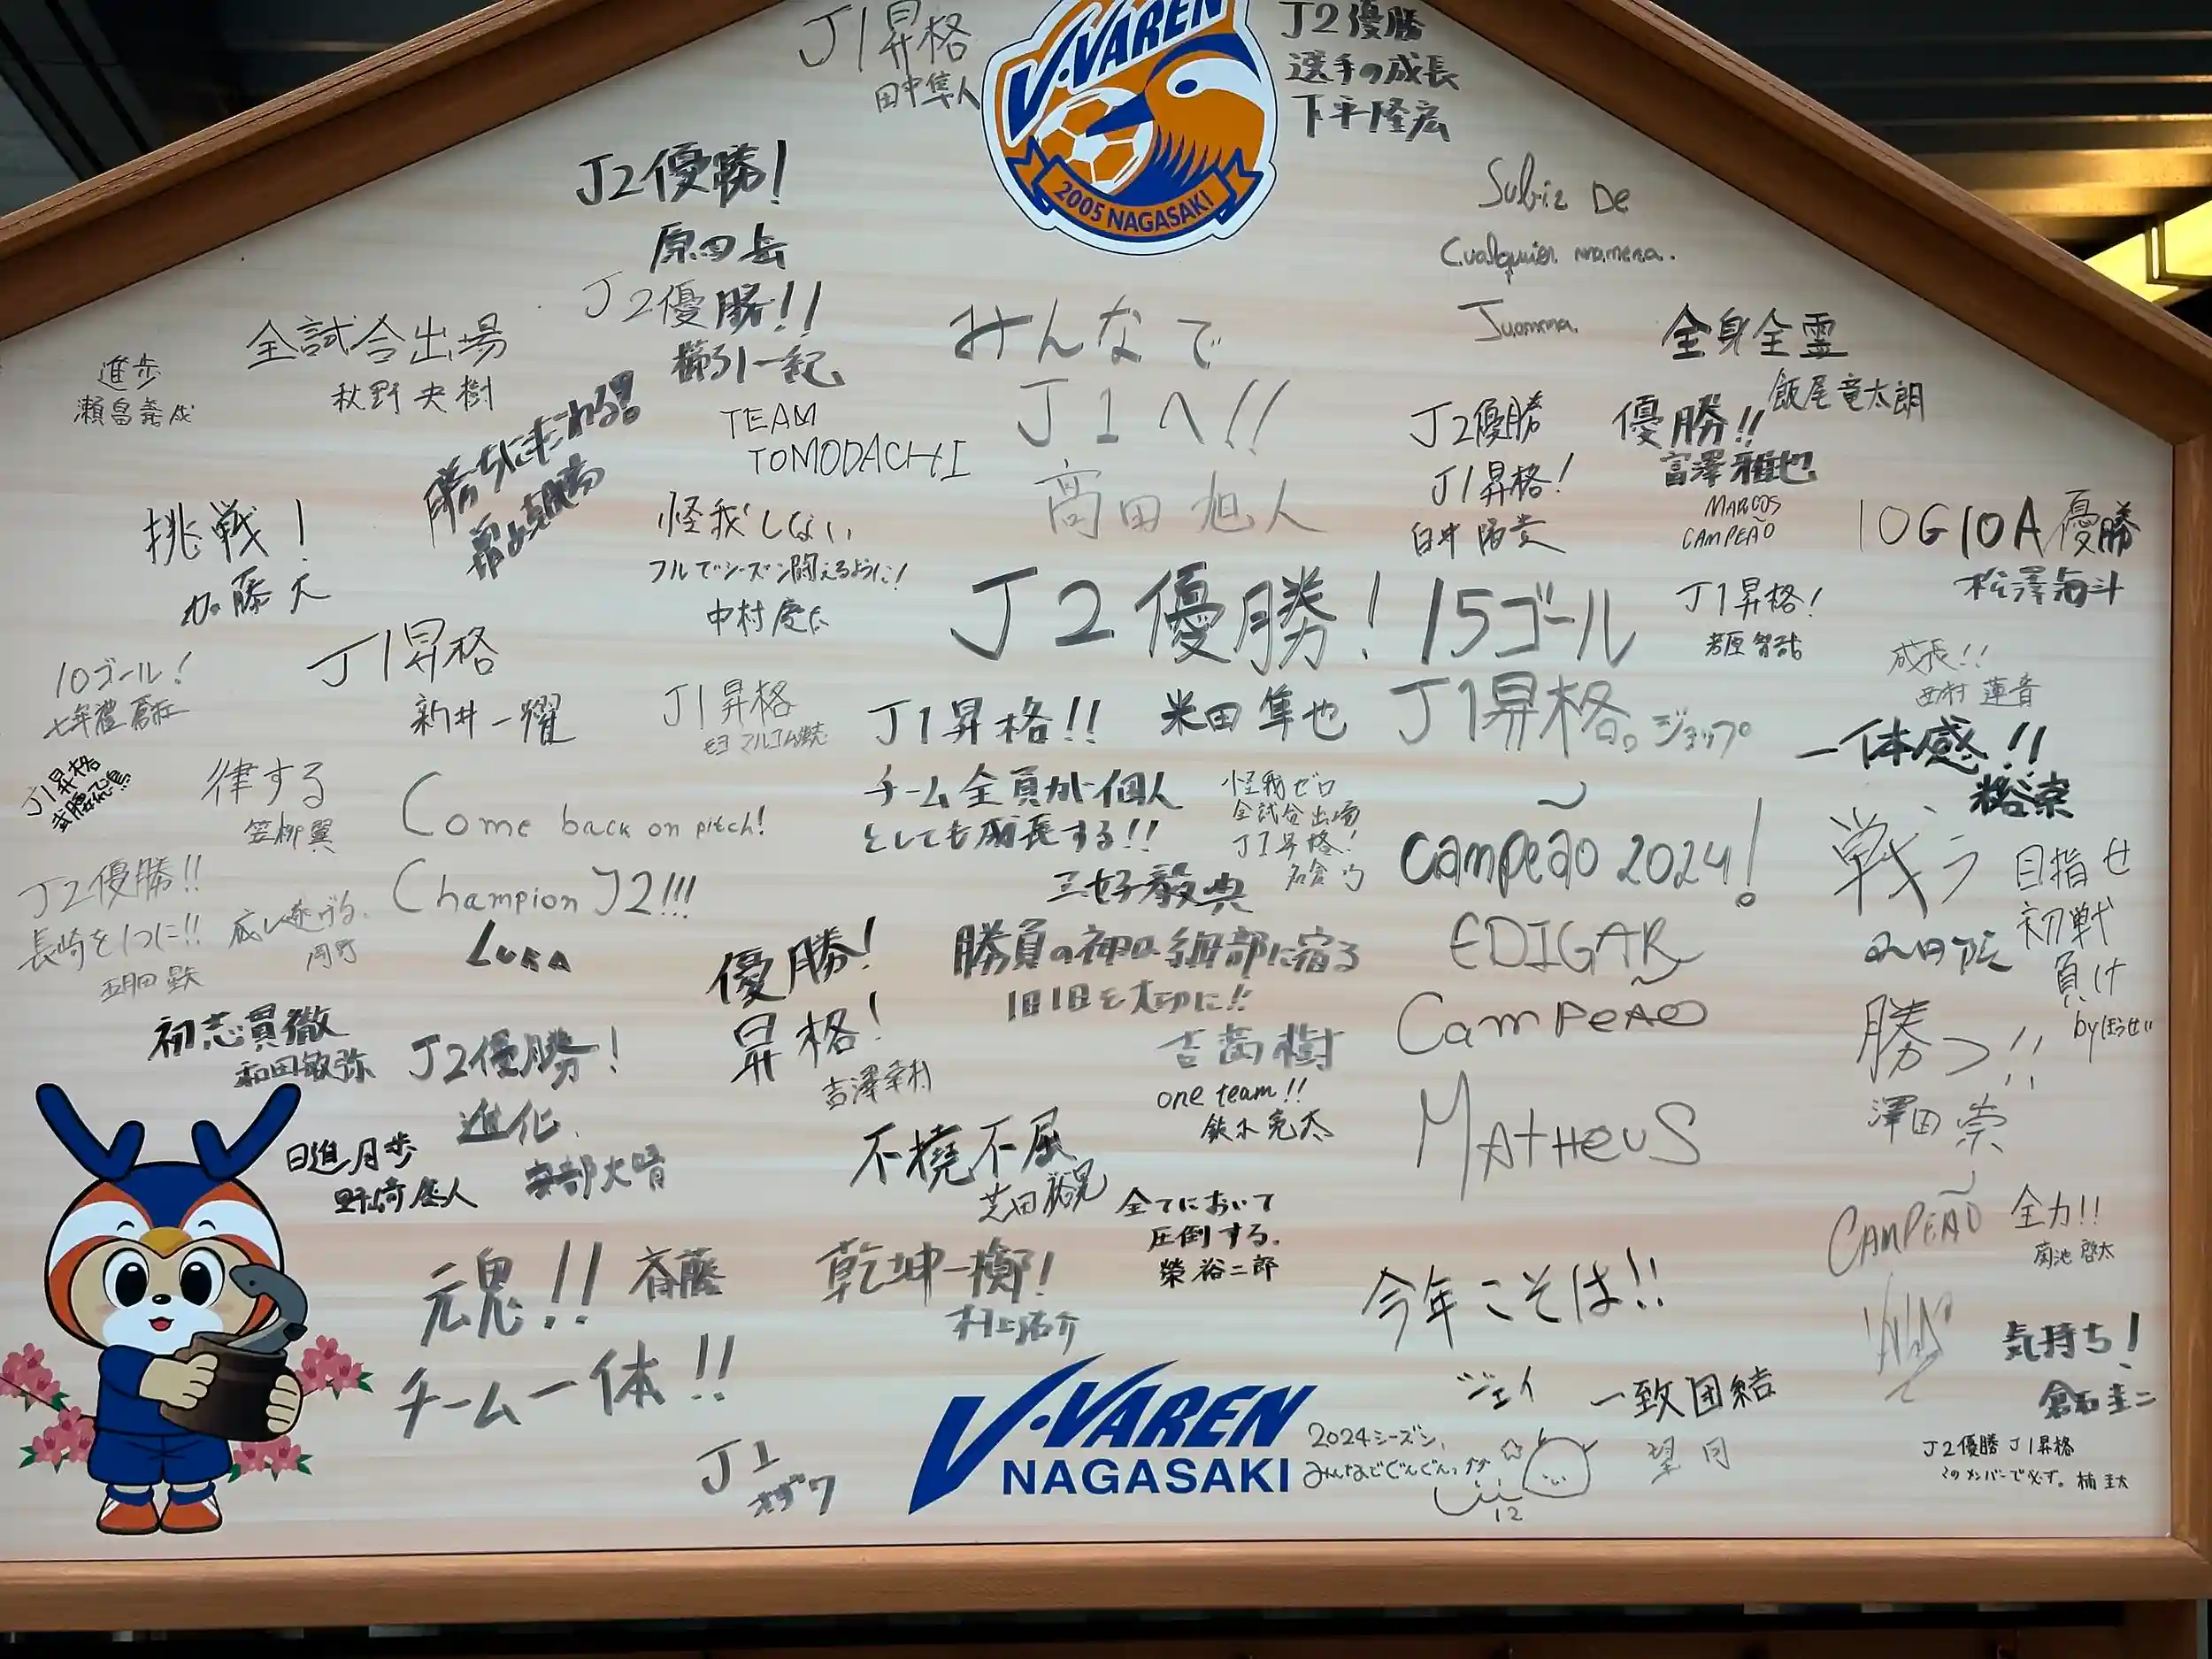 J1昇格
田中隼人
V·VAREN
2005 NAGASAKI
J2優勝
選手の成長
下平隆宏
J2優勝!
原田岳
J2優勝!!
櫛引一紀
Subir De
Cualquier manera.
Juanma.
全試合出場
秋野央樹
進歩
瀬畠義成
みんなで
J1へ!!
髙田旭人
全身全霊
飯尾竜太朗
勝ちにこだわる!
TEAM
TOMODACHI
J2優勝
J1昇格!
田中陽貴
優勝!!
富澤雅也
MARCOS
CAMPEÃO
挑戦!
加藤大
怪我しない
フルでシーズン闘えるように!
中村慶太
10G10A優勝
松澤海斗
J2優勝! 15ゴール
米田隼也
J1昇格!
若原智哉
J1昇格
新井一耀
10ゴール!
J1昇格
モヨ マルコム強志
J1昇格!!
チーム全員が個人
としても成長する!!
三好毅典
J1昇格。ジョップ
成長!!
西村蓮音
一体感!!
J1昇格
律する
笠柳翼
Come back on pitch!
Champion J2!!!
LUKA
怪我ゼロ
全試合出場
J1昇格!
名倉巧
Campeão 2024!
EDIGAR
戦う
目指せ
初戦
負け
J2優勝!!
長崎を1つに!!
底上げる.
優勝!
昇格!
吉澤幸村
勝負の神は細部に宿る
1日1日を大切に!!
吉岡樹
Campeão
MATHEUS
勝つ!!
澤田崇
初志貫徹
和田敏弥
J2優勝!
進化
安部大晴
one team!!
鈴木亮太
日進月歩
野﨑隆人
不撓不屈
芝田裕晃
全てにおいて
圧倒する.
榮裕二郎
CAMPEÃO
全力!!
菊池啓太
元鬼!! 斉藤
チーム一体!!
乾坤一擲!
村上佑介
今年こそは!!
ジェイ
気持ち!
倉石圭二
一致団結
望月
J1
オザワ
V·VAREN
NAGASAKI
2024シーズン、
みんなでぐんぐんッ
12
J2優勝 J1昇格
このメンバーで必ず。楠圭太